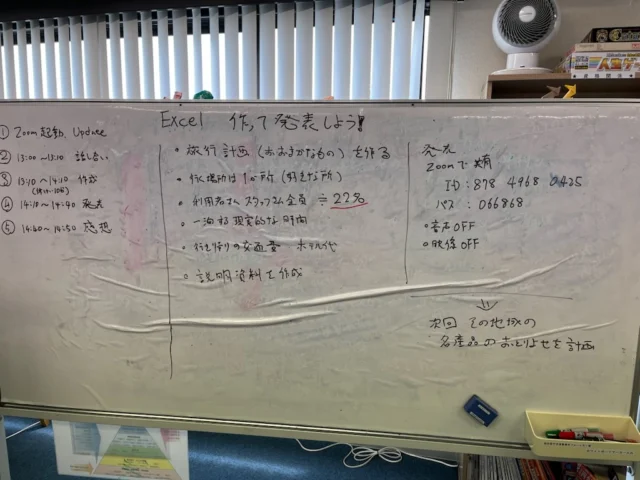 Excel 作って発表しよう!!
① Zoom起動、Update
② 13:00〜13:10 話し合い
③ 13:10〜14:10 作成
④ 14:10〜14:40 発表
⑤ 14:40〜14:50 感想
・旅行計画(おおまかなもの)を作る
・行く場所は1か所(好きな所)
・利用者さん スタッフさん 全員 ≒22名
・一泊 現実的な時間
・行き帰りの交通費 ホテル代
・説明資料を作成
発表
Zoomで共有
ID : 878 4968 0425
パス : 066868
・音声OFF
・映像OFF
次回 その地域の
名産品のおとりよせを計画